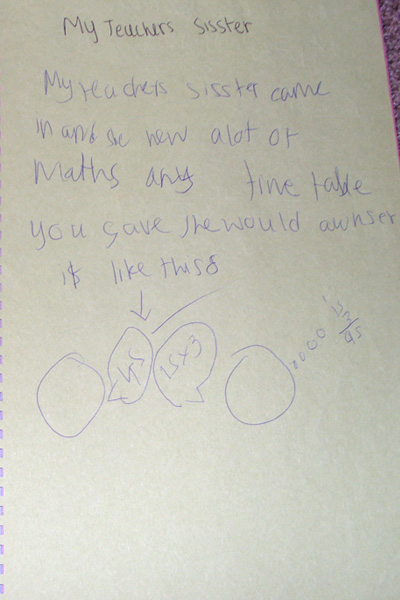 My Teachers Sisster
My teachers sisster came
in and se new alot of
Maths any time table
you gave she would awnser
it like this:
45
15x3
15
3
45